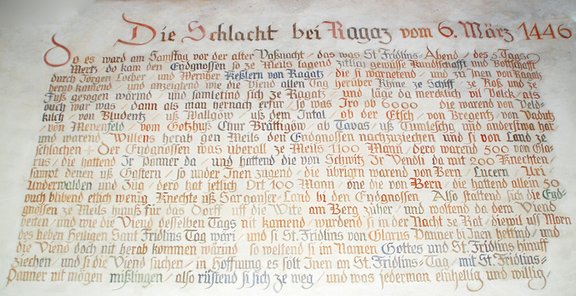 Die Schlacht bei Ragaz vom 6. März 1446
Do es ward am Samstag vor der alten Vaßnacht / das was St. Fridlins Abend / des 5 Tags
Mertz do kam den Eydgnossen so ze Meils lagend zitlich gewüsse Kundtschafft und Bottschafft
durch Jörgen Locher und Wernher Keßlern von Ragatz die si warnetend / und zu Inen von Ragatz
herab kamend und anzeigtend wie die Viend allen Tag herüber Rhine ze Schiff ze Roß und ze
Fuß gezogen wärind und samletind sich ze Ragatz und läge da merklich vil Volk als
ouch war was / dann als man hernach erfur / so was Iro ob 6000 die warend von Veld-
kilch / von Bludentz uß Wallgöw uß dem Intal ob der Etsch von Bregentz von Vadutz
von Meyenfeld von Gotzhuß Chur Brättigöw ab Tavas uß Tumleschg und anderschwa har
und warend Willens herab gen Meils den Eydgnossen nachzuziechen und si von Land ze
schlachen Der Eydgnossen was überall ze Meils 1100 Mann dero warend 500 von Gla-
rus / die hattend Ir Panner da und hattend die von Schwitz Ir Vendli da mit 200 Knechten
sampt denen uß Gastern so under Inen zugend die übrigen warend von Bern Lucern Uri
Underwalden und Zug / dero hat jetlich Ort 100 Mann one die von Bern die hattend allein 50
ouch blibend etlich wenig Knechte uß Sarganser-Land bi den Eydgnossen Also stalltend sich die Eydg-
gnossen ze Meils hinuß für das Dorff uff die Wite am Berg züher und woltend do dem Viend
beiten / und wie die Viend desselben Tags nit kamend wurdend si in der Nacht ze Rat diewil uff Morn
des helgen Heiligen Sant Fridlins Tag wär und si St. Fridlins von Glarus Panner bi Inen hettind und
die Viend doch nit herab kommen würind so weltend si im Namen Gottes und St. Fridlins hinuff
ziechen und si die Viend suchen in Hoffnung es sölt Inen an St. Fridlins-Tag mit St. Fridlins-
Panner nit mögen mißlingen / also rüstend si sich ze weg und was jederman einhellig und willig